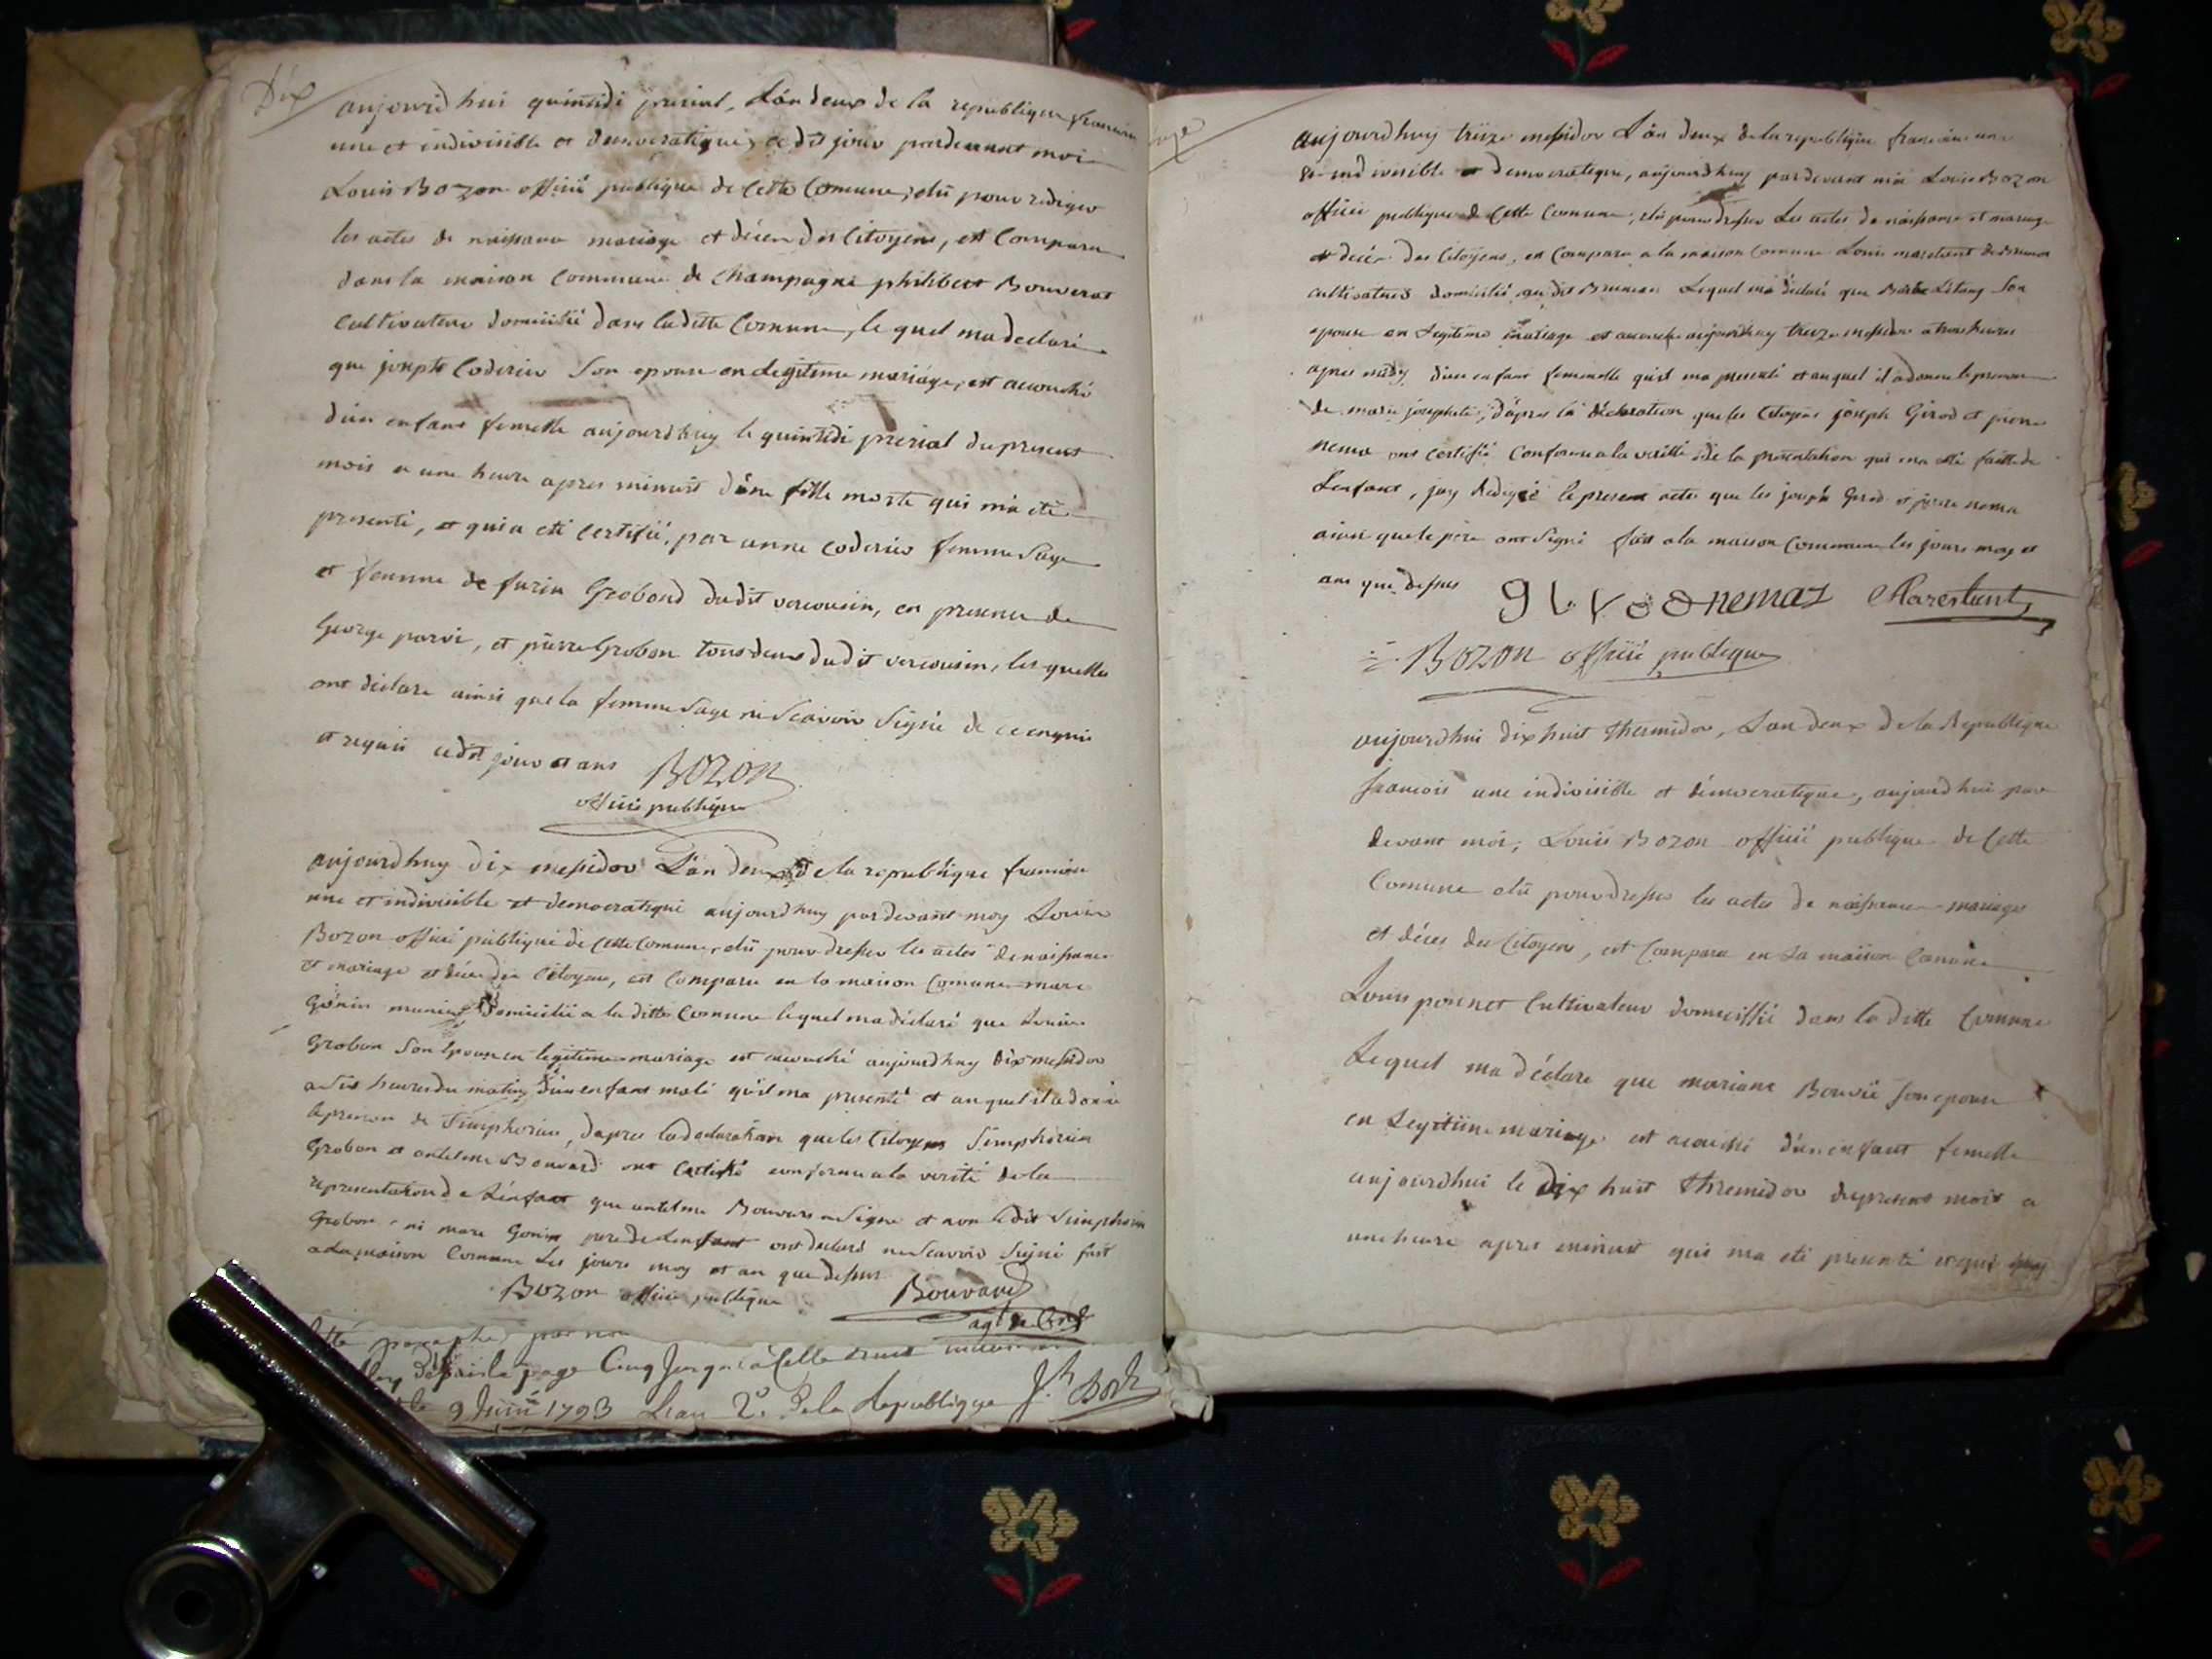 Dix
aujourdhui quintidi prerial, Lan deux de la republique francoise
une et indivisible et democratique, ce dit jour pardevant moi
Louis Bozon officié publique de Cette Comune, élu pour rediger
les actes de naissance mariage et décen des Citoyens, est Comparu
dans la maison Commune de Champagne philibert Bouverat
Cultivateur domicilié dans laditte Comune, le quel ma declaré
que josepte Coderier Son epouse en legitime mariage, est accouché
d'un enfant femelle aujourdhuy le quintidi prerial du present
mois a une heure apres minuit d'une fille morte qui m'a eté
presenté, et qui a eté certifié, par anne Coderier femme Sage
et femme de Grobond dudit vercousin, en presence de
George parvi, et pierre Grobon tous deux dudit vercousin, les quelles
ont déclare ainsi que la femme Sage ne Scavoir Signé de ce enquis
et requis cedit jour et ans BOZON
officié publique
aujourdhuy dix messidor L'an deux de la republique francoise
une et indivisible et democratique aujourdhuy pardevant moy Louis
Bozon officié publique de Cette Comune, élu pour dresser les actes de naissance
et mariage et décés des Citoyens, est Comparu en la maison Comune marc
Gonin munier domicilié a la ditte Comune lequel ma déclaré que Louise
Grobon Son Epouse en legitime mariage est accouché aujourdhuy dix messidor
a Six heures du matin d'un enfant male qu'il ma presenté et au quel il a donné
le prenom de Simphorien, dapres la declaration que les Citoyens Simphorien
Grobon et antelme Bouvard ont Certifié conforme a la verité de la
representation de L'enfant que antelme Bouvard a Signé et non ledit Simphorien
Grobon, ni marc Gonin pere de Lenfant ont declaré ne Scavoir Signé fait
a la maison Comune Les jours moy et an que dessus
Bozon officié publique Bouvard
agt
paraphé par
page Cinq Jusqu'à Celle
le 9 Juin 1793 Lan 2e De la Republique
aujourdhuy treize messidor L'an deux de la republique francaise une
et indivisible et democratique, aujourdhuy pardevant moi Louis Bozon
officié publique de Cette Comune, élu pour dresser Les actes de naissance et mariage
et décés des Citoyens, est Comparu a la maison Comune Louis marestent
cultivateur domicilié audit Lequel ma déclaré que Letang Son
epouse en Legitime mariage est accouché aujourdhuy treize messidor a trois heures
apres midy d'un enfant femmelle quil ma presenté et auquel il a donné le prenom
de marie josephete, d'apres la déclaration que les Citoyens joseph Girod et pierre
nema ont certifié Conforme a la verité de la presentation qui ma eté faitte de
Lenfant, jay Redigié le present acte que les joseph Girod et pierre nema
ainsi que le pere ont Signé fait a la maison Commune les jours moy et
ans que dessus nemaz Marestent
BOZON officié publique
aujourdhui dix huit thermidor, Lan deux de la Republique
francois une indivisible et démocratique, aujourdhui par
devant moi, Louis Bozon officié publique de Cette
Comune élu pour dresser les actes de naissance mariage
et déces des Citoyens, est Compara en La maison Comune
Louis ponnet Cultivateur domicillié dans la ditte Comune
Lequel ma déclare que mariane Bouvié Son epouse
en Legitime mariage est acouché d'un enfant femelle
aujourdhui le dix huit thremidor du present mois a
une heure apres minuit qui ma eté presenté et qui